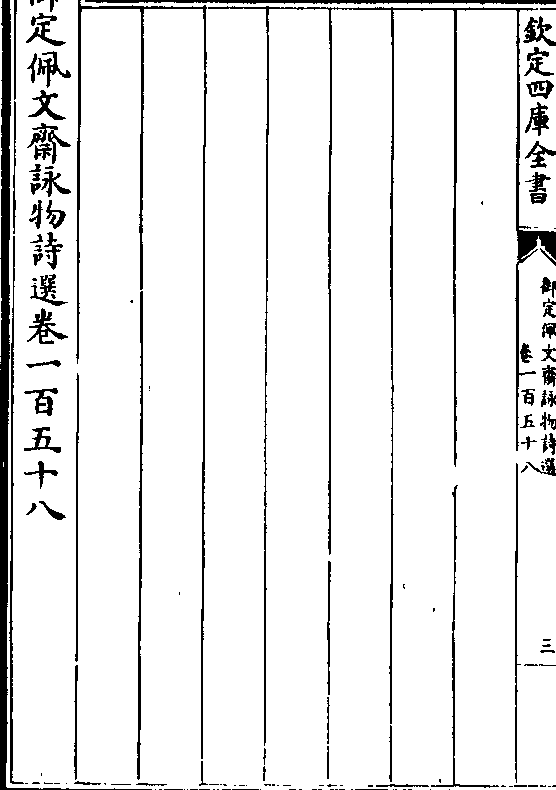 欽定四庫全書
御定佩文齋詠物詩選
卷一百五十八
三
御定佩文齋詠物詩選卷一百五十八